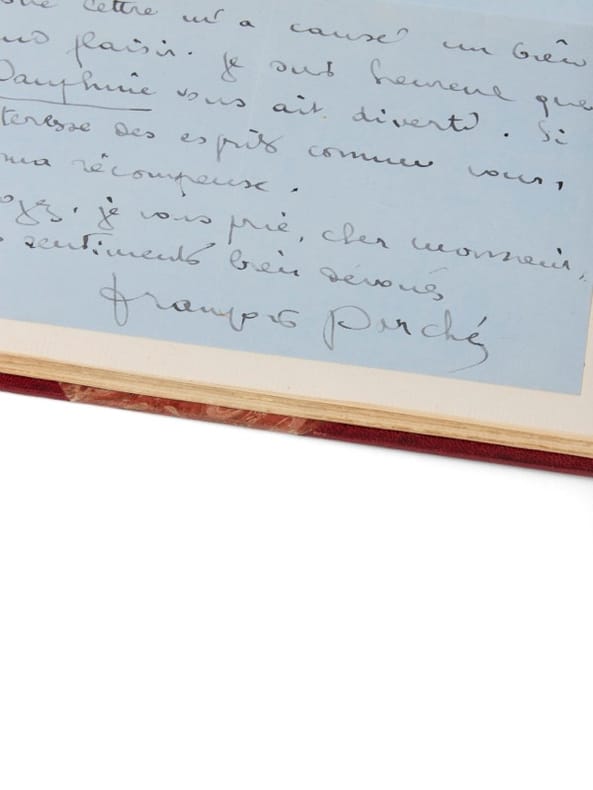 lettre m'a causé un bien
plaisir. Je suis heureux que
Dauphine vous ait diverti. Si
des esprits comme vous,
ma récompense.
je vous prie, cher monsieur,
sentiments bien dévoués
François Porché